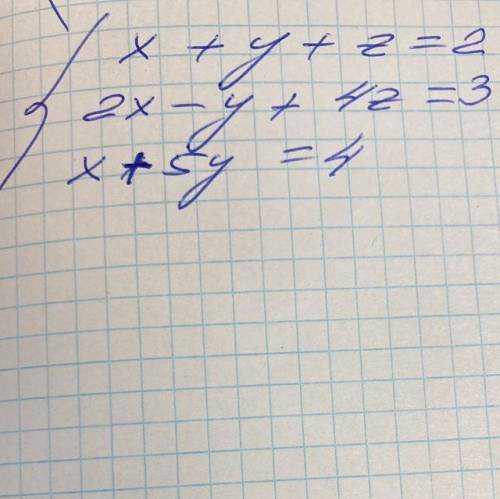 x + y + z = 2
2x - y + 4z = 3
x + 5y = 4